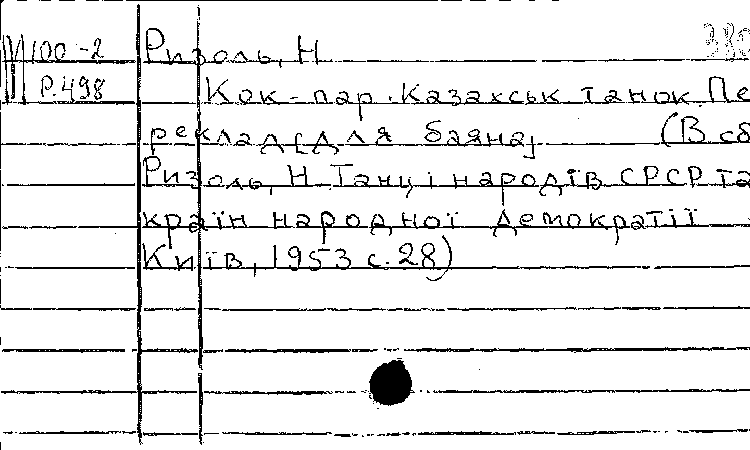 М 100-2 Ризоль, Н 380
Р.498 Кок-пар. Казахськ танок. Пе
реклад [для баяна] (В сб
Ризоль, Н Танці народів СРСР та
країн народної демократії
Київ, 1953 с. 28)